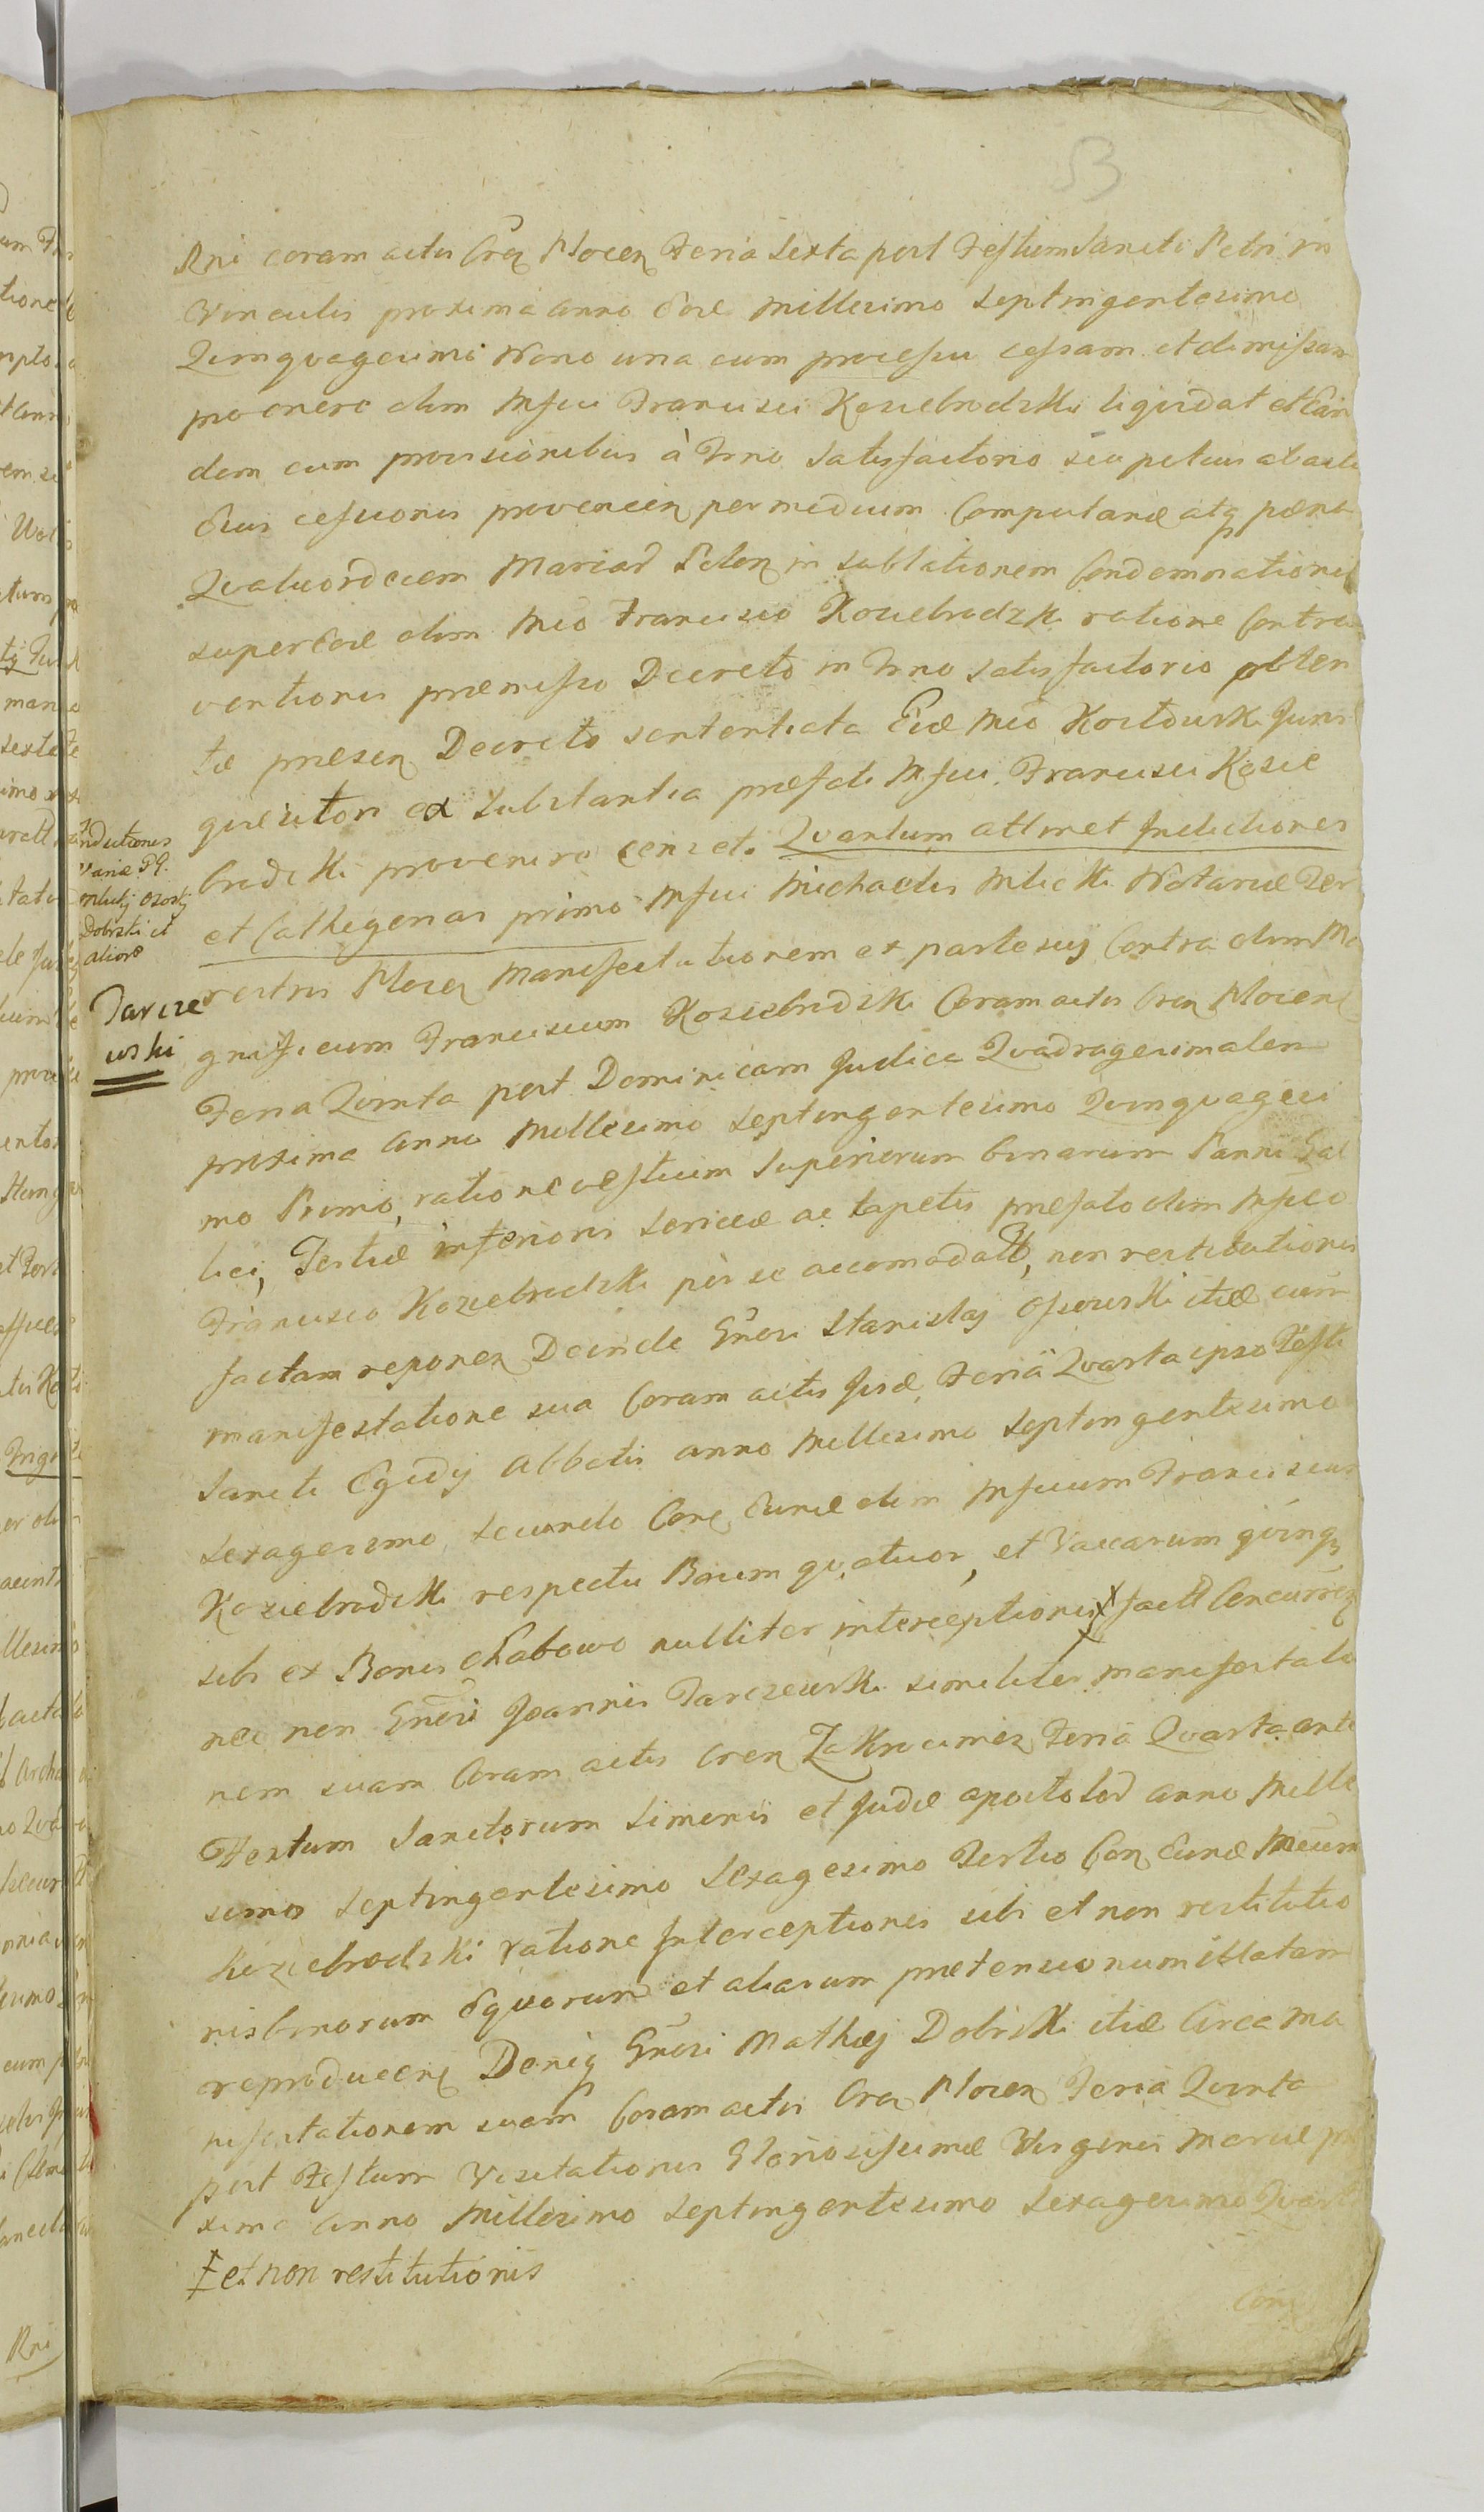 53
Rni coram actis Cren Plocen Feria Sexta post Festum Sancti Petri in
Vinculis proxima Anno Eodem Millesimo Septingentesimo
Quinquagesimo Nono una cum processu cessam et dimissam
pro onere olim Mfici Francisci Koziebrodzki liquidat et Ean
dem cum provisionibus à Trno Satisfactorio seu potius ab actu
Ejus cessionis provenien per medium Computandae atq paena
Quatuordecem Marcar Polon in sublationem Condemnationis
super Eodem olim Mco Francisco Koziebrodzki ratione Contra
ventionis praemisso Decreto in Trno Satisfactorio obten
tae praesen Decreto sententiata Eidem Mco Kostowski Juris
quaesitori ex Substantia praefati Mfici Francisci Kozie
brodzki provenire censet. Quantum attinet Inductiones
et Cathegorias primo Mfici Michaelis Milicki Notarii Ter
restris Plocen Manifestationem ex parte sui Contra olim Ma
gnificum Franciscum Koziebrodzki Coram actis Cren Plocens
Feria Quinta post Dominicam Judica Quadragesimalem
proxima Anni Millesimi Septingentesimo Quinquagesi
mo Primo, ratione vestium Superiorum binarum Panni Gal
lici, Tertiae inferioris Sericeae ac tapetis praefato olim Mfico
Francisco Koziebrodzki per se accomodatt, non restitutionis
factam reponen Deinde Gnosi Stanislai Ossowski itidem cum
manifestatione sua Coram actis Iisdem Feria Quarta ipso Festi
Sancti Egidij Abbatis anno Millesimo Septingentesimo
Sexagesimo Secundo Con Eundem olim Mficum Franciscum
Koziebrodzki respectu Boum quatuor, et Vaccarum quinq
sibi ex Bonis Chabowo nulliter interceptionis ⨳ factt Concurren
nec non Gnosi Joannis Tarczewski similiter manifestatio
nem suam Coram actis Cren Zakrocimen Feria Quarta ante
Festum Sanctorum Simonis et Judae apostolor anno Mille
simo Septingentesimo Sexagesimo Tertio Con Eundem Mcum
Koziebrodzki ratione Interceptionis sibi et non restitutio
nis binorum Equorum et aliarum praetensionum illatam
reproducens Deniq Gnosi Mathaei Dobrski itidem Circa ma
nifestationem suam Coram actis Cren Plocen Feria Quinta
post Festum Visitationis Gloriosissimae Virginis Mariae pro
xima Anno Millesimo Septingentesimo Sexagesimo Quarto
⨳ et non restitutionis
Con
Inductiones
variae PP.
Milicki Ossow
Dobrski et
alior
Tarcze
wski
Rni